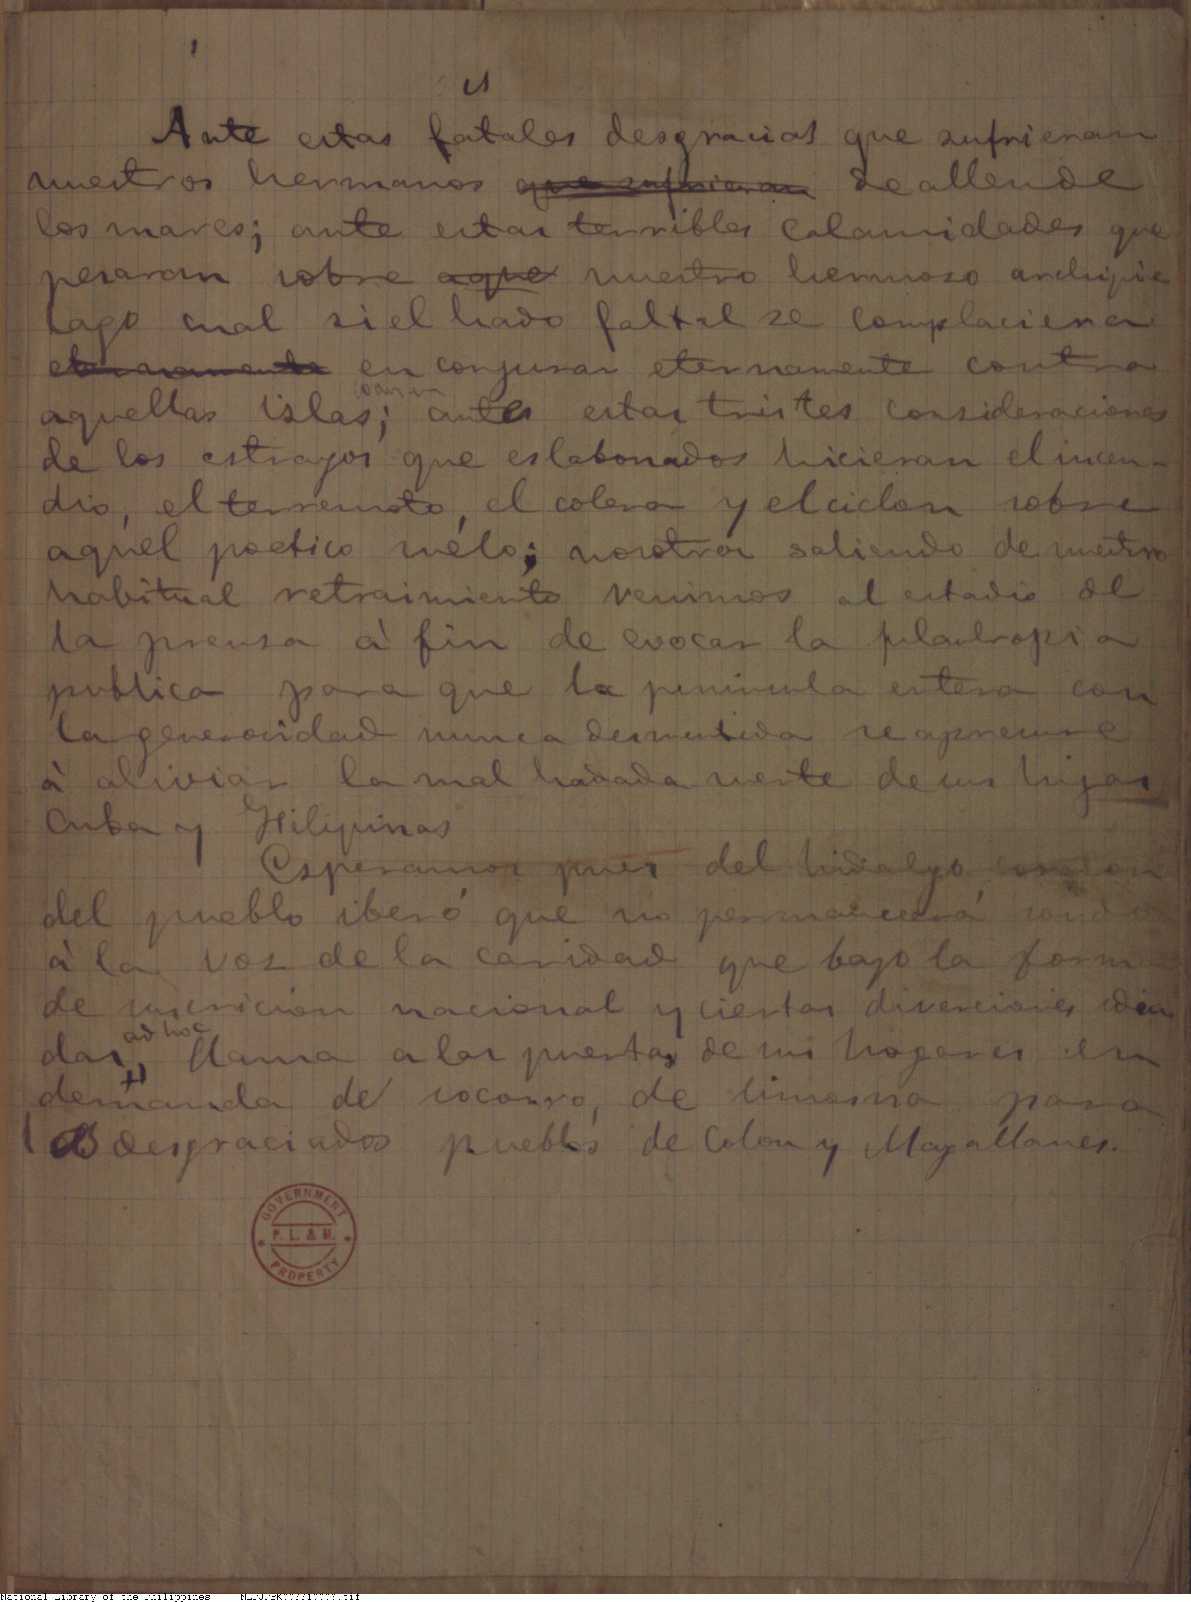 Ante estas fatales desgracias que sufrieran
nuestros hermanos que sufrieran de allende
los mares; ante estas terribles calamidades que
pesaran sobre aque nuestro hermoso archipié
lago cual si el hado faltal se complaciera
eternamente en conjurar eternamente contra
aquellas islas; antes estas tristes consideraciones
de los estragos que eslabonados hicieran el incen-
dio, el terremoto, el colera y el ciclon sobre
aquel poetico suelo; nosotros saliendo de nuestro
habitual retraimiento venimos al estadio de
la prensa á fin de evocar la filantropia
publica para que la peninsula entera con
la generocidad nunca desmentida se apresure
á aliviar la mal hadada suerte de sus hijas
Cuba y Filipinas
Esperamos pues del hidalgo corazon
del pueblo iberó que no permanecerá
á la voz de la caridad que bajo la forma
de suscricion nacional y ciertas diverciones idea
ad hoc
das, llama a las puertas de sus hogares en
demanda de socorro, de limosna para
los desgraciados pueblos de Colon y Magallanes.
GOVERNMENT
P. L. & M.
PROPERTY
National Library of the Philippines